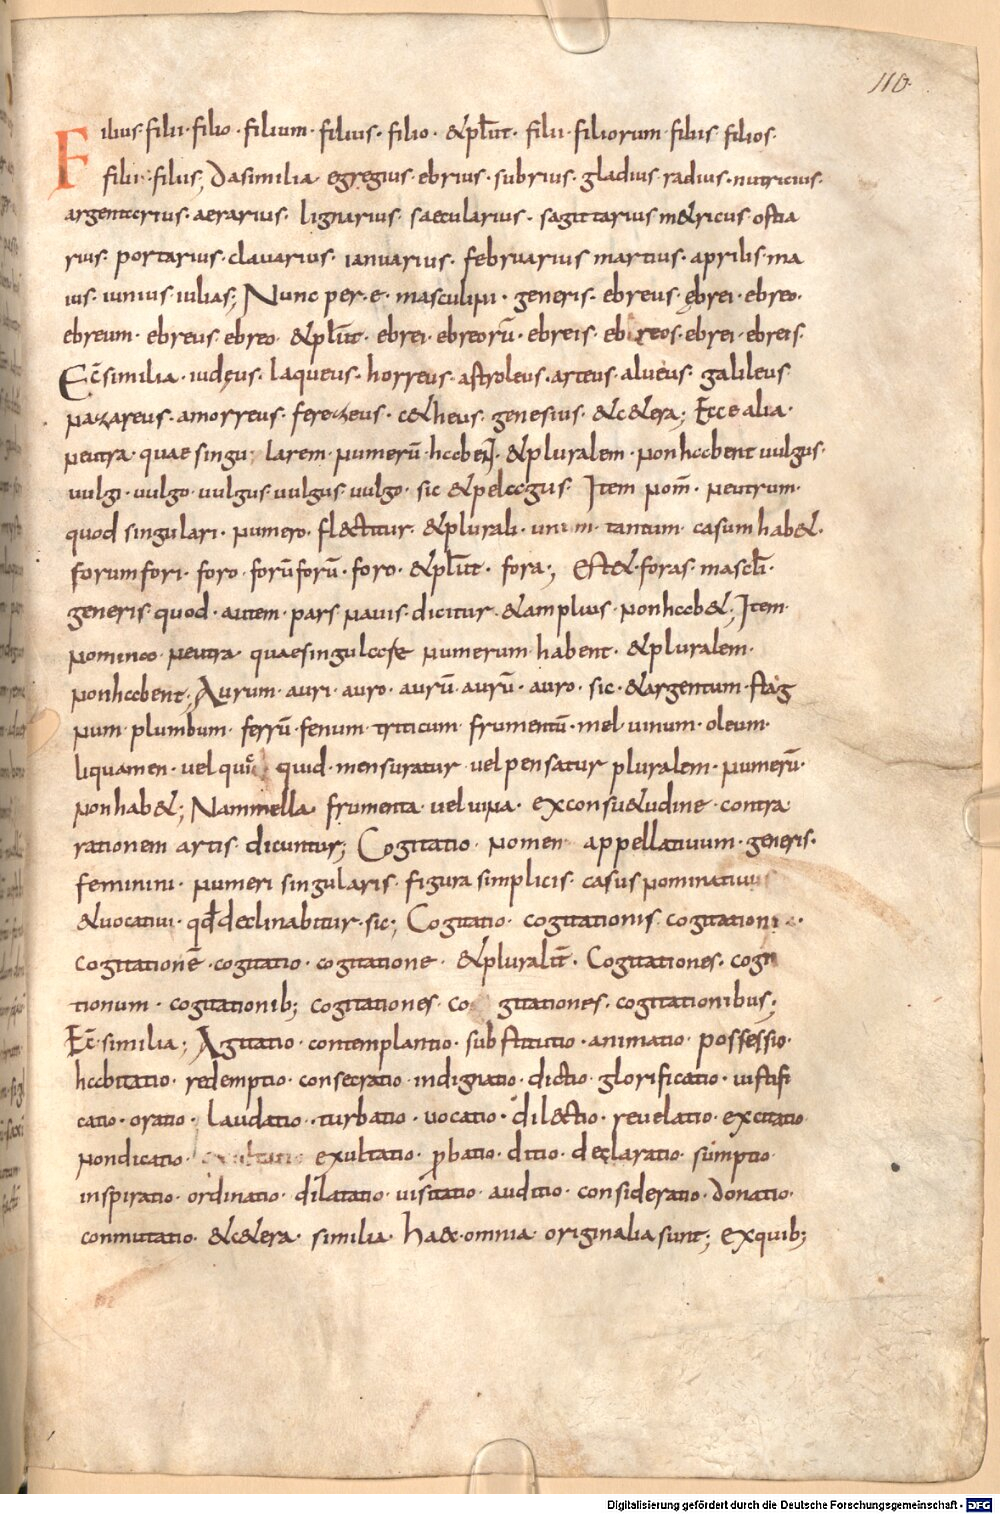 110.
Filius filii · filio · filium · filius · filio · &plur̄t · filii · filiorum filiis filios ·
filii · filiis; Dasimilia egregius · ebrius · subrius · gladius radius · nutricius ·
argentcrius · aerarius · lignarius · saecularius · sagittarius m&ricus ostia
rius · portarius · clauarius · ianuarius · februarius martius · aprilis · ma
ius · iunius iulias; Nunc per · e · masculini · generis · ebreus ębrei · ebreo ·
ebreum · ebreus ebreo · &plūt · ebrei · ebreorū · ebreis · ebreos · ebrei · ebreis ·
Ec̄ similia · iudęus · laqueus · horreus · astroleus · arteus · alueus · galileus
nazareus · amorreus · ferezeus · c&heus · genesius · &c&era; Ecce alia ·
neutra · quae singu larem · numerū · habe · &pluralem · non habent uulgus ·
uulgi · uulgo · uulgus uulgus · uulgo · sic &pelagus · Item nom̄ · neutrum ·
quod singulari · numero · fl&titur · &plurali · unum · tantum · casum hab& ·
forum fori · foro · forū forū · foro · &plūt · fora; Est& · foras · mascl̄i ·
generis · quod · autem · pars nauis · dicitur · &amplius · non hab&; Item
nomina neutra quae singulare numerum · habent · &pluralem ·
non habent; Aurum · auri · auro · aurū · aurū · auro · sic · &argentum · stag
num plumbum · ferrū · fenum · triticum · frumentū · mel uinum · oleum ·
liquamen · uel quid · mensuratur · uel pensatur pluralem · numerū ·
non hab&; Nam mella frumenta · uel uina · ex consu&udine · contra
rationem artis · dicuntur; Cogitatio · nomen appellatiuum · generis ·
feminini · numeri singularis · figura simplicis · casus nominatiuus
&uocatiui · qđ declinabitur · sic; Cogitatio · cogitationis cogitationi ·
cogitationē · cogitatio · cogitatione · &pluralit̄ · Cogitationes · cogi
tionum · cogitationib; cogitationes co gitationes · cogitationibus;
Ec̄ · similia; Agitatio · contemplantio · substitutio · animatio · possessio ·
habitatio · redemptio · consecratio · indignatio · dictio · glorificatio · iustifi
catio · oratio · laudatio · turbatio · uocatio · dil&tio · reuelatio · excitatio
nondicatio · exultatio · p̄batio · ditio · declaratio · sumptio
inspiratio · ordinatio · dilatatio · uisitatio · auditio · consideratio · donatio ·
conmutatio · &c&era · similia · Haec · omnia · originalia sunt; ex quib;
Digitalisierung gefördert durch die Deutsche Forschungsgemeinschaft · DFG